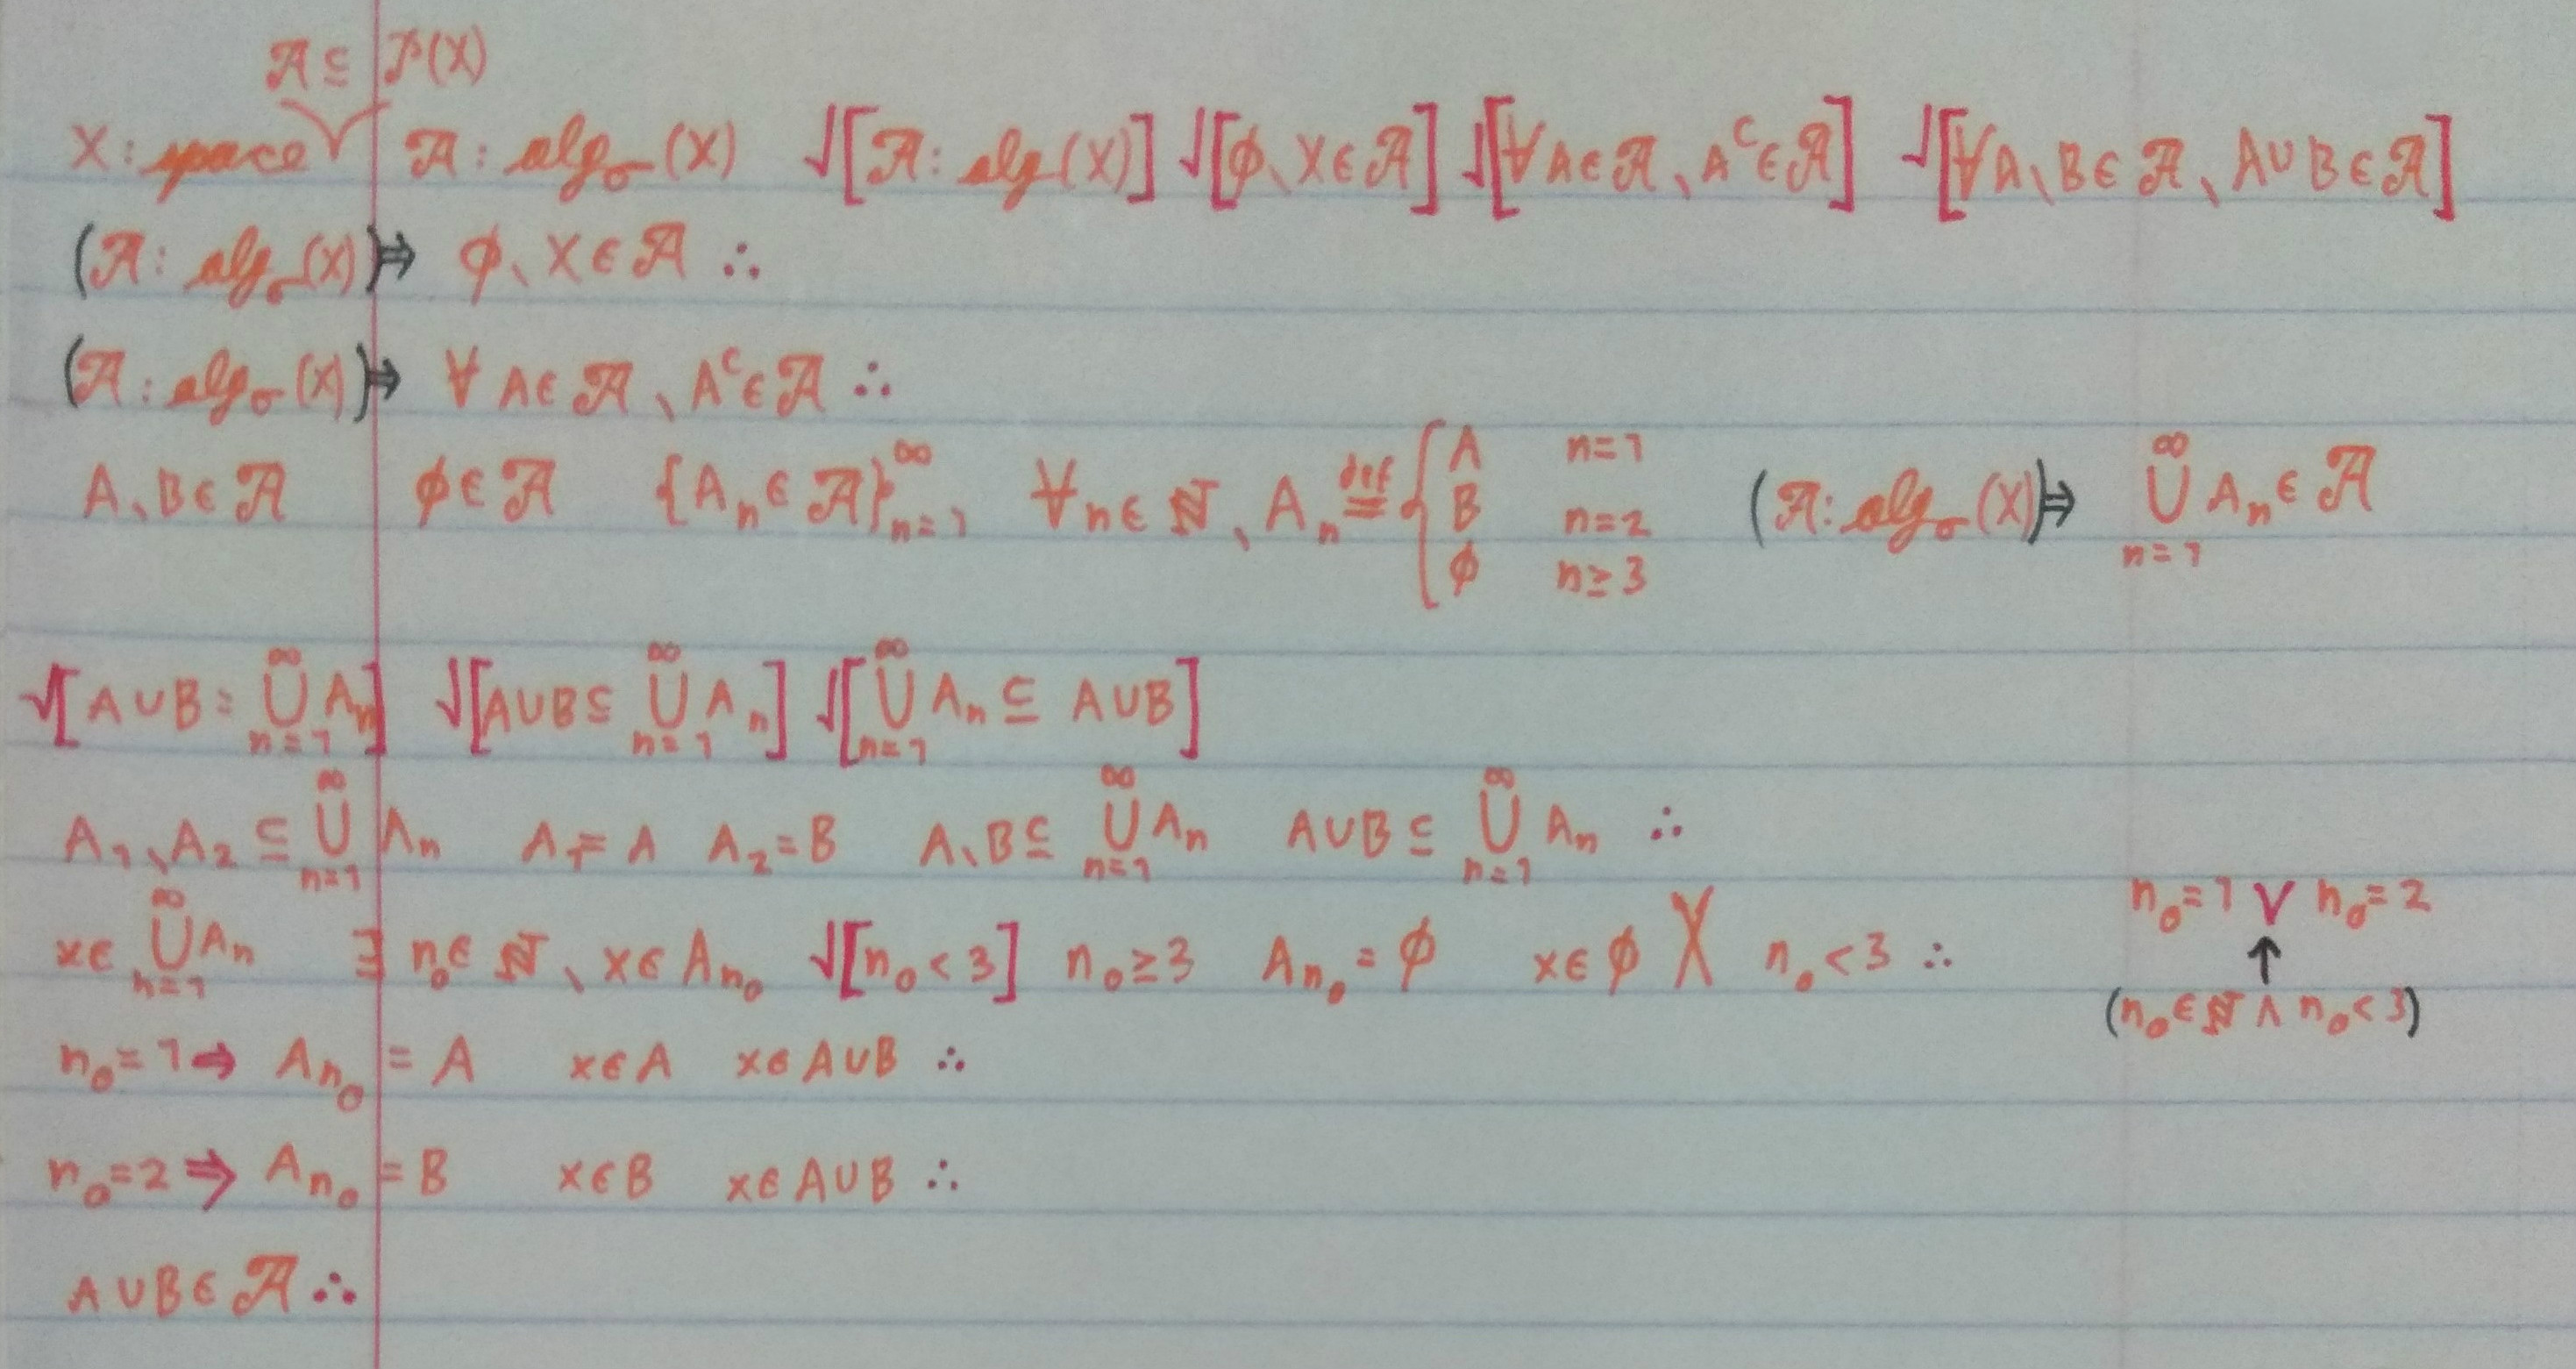 𝒜 ⊆ 𝒫(X)
X: space 𝒜: alg_σ(X) √[𝒜: alg(X)] √[∅、X ∈ 𝒜] √[∀A ∈ 𝒜、A^c ∈ 𝒜] √[∀A、B ∈ 𝒜、A∪B ∈ 𝒜]
(𝒜: alg_σ(X)) ⇒ ∅、X ∈ 𝒜 ∴
(𝒜: alg_σ(X)) ⇒ ∀ A ∈ 𝒜、A^c ∈ 𝒜 ∴
A、B ∈ 𝒜 ∅ ∈ 𝒜 {A_n ∈ 𝒜}_{n=1}^∞、 ∀n ∈ ℕ、A_n ≝ { A n=1; B n=2; ∅ n≥3 (𝒜: alg_σ(X)) ⇒ ⋃_{n=1}^∞ A_n ∈ 𝒜
√[A∪B = ⋃_{n=1}^∞ A_n] √[A∪B ⊆ ⋃_{n=1}^∞ A_n] √[⋃_{n=1}^∞ A_n ⊆ A∪B]
A_1、A_2 ⊆ ⋃_{n=1}^∞ A_n A_1 = A A_2 = B A、B ⊆ ⋃_{n=1}^∞ A_n A∪B ⊆ ⋃_{n=1}^∞ A_n ∴
x ∈ ⋃_{n=1}^∞ A_n ∃ n_0 ∈ ℕ、x ∈ A_{n_0} √[n_0 < 3] n_0 ≥ 3 A_{n_0} = ∅ x ∈ ∅ X n_0 < 3 ∴
n_0 = 1 ∨ n_0 = 2
↑
(n_0 ∈ ℕ ∧ n_0 < 3)
n_0 = 1 ⇒ A_{n_0} = A x ∈ A x ∈ A∪B ∴
n_0 = 2 ⇒ A_{n_0} = B x ∈ B x ∈ A∪B ∴
A∪B ∈ 𝒜 ∴